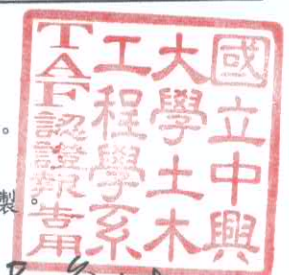 國立中興
大學土木
工程學系
TAF認證報告用
。
製。